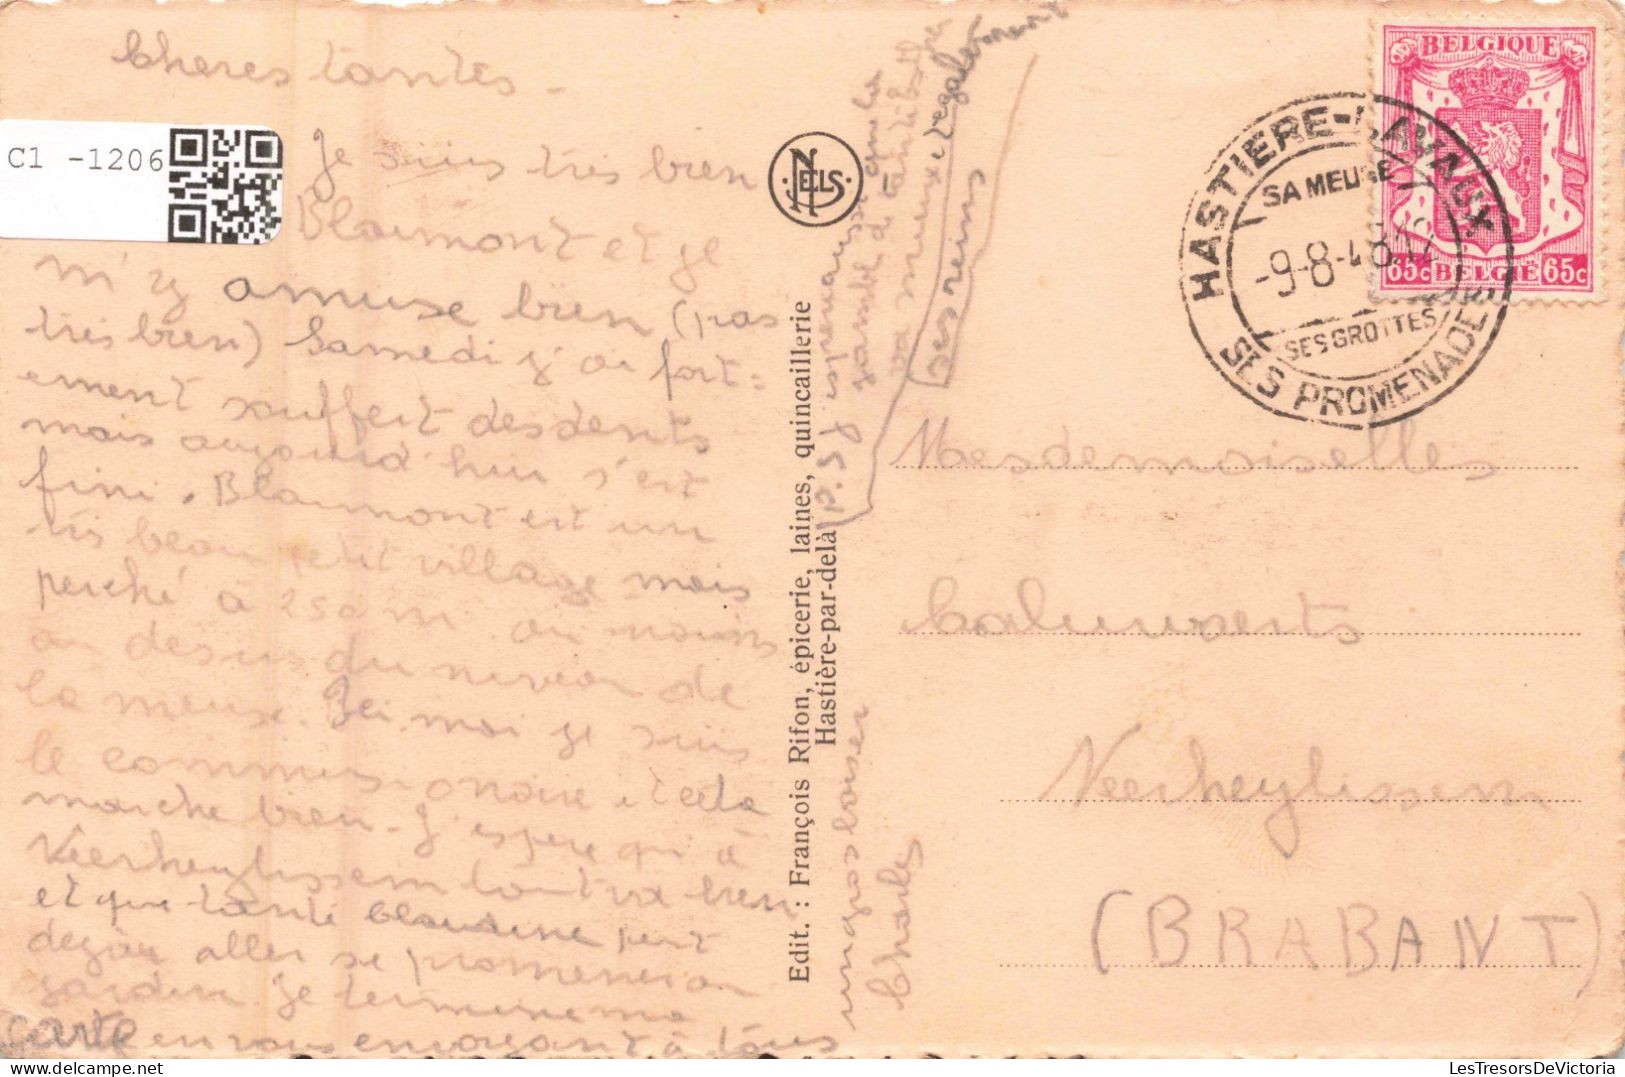 Cheres tantes -
Je suis très bien
Blaimont et je
m'y amuse bien (pas
très bien) Samedi j'ai fort=
ement souffert des dents
mais aujourd'hui s'est
fini. Blaimont est un
très beau petit village mais
perché à 250 m au moins
au desus du niveau de
la meuse. Ici moi je suis
le commissionaire et cela
marche bien - J'espère qui à
Neerheylissem tout va bien
et que tante Claudine peut
degia aller se promener au
jardin je termine ma
carte en vous envoyant à tous
un gros baiser
Charles
P.S.
que la
jambe de tante
va mieux et également
ses reins
C1 -1206
NELS
Edit. : François Rifon, épicerie, laines, quincaillerie
Hastière-par-delà
BELGIQUE
65c BELGIË 65c
HASTIERE-LAVAUX
SA MEUSE
-9-8-48.12
SES GROTTES
SES PROMENADES
Mesdemoiselles
Neerheylissem
(BRABANT)
www.LesTresorsDeVictoria.com